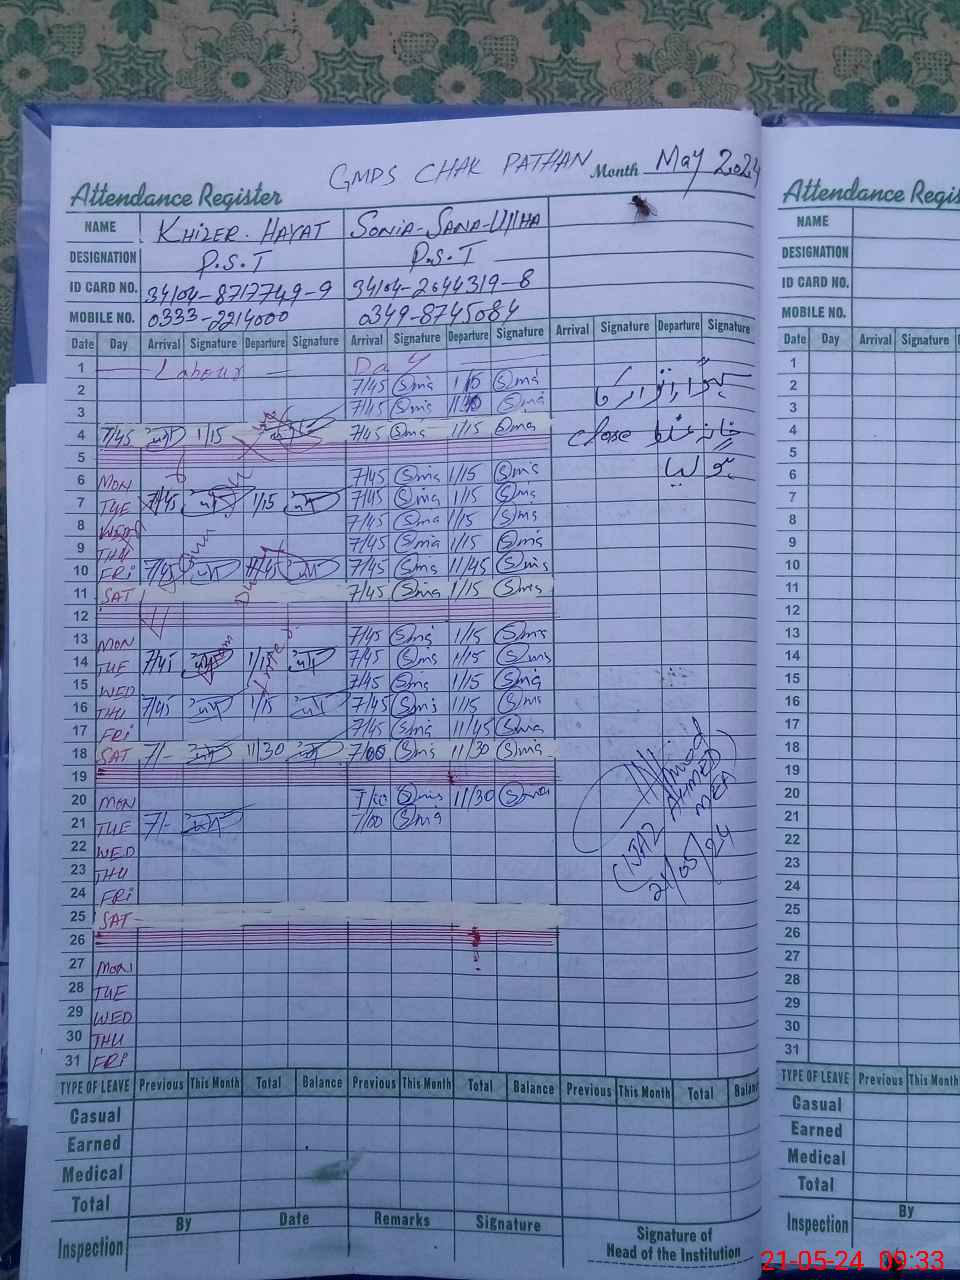 GMPS CHAK PATHAN Month May 2024
Attendance Register
NAME Khizer. Hayat Sonia-Sana-Ullha
DESIGNATION P.S.T P.S.T
ID CARD NO. 34104-8717749-9 34104-2644319-8
MOBILE NO. 0333-2214000 0349-8745084
Date Day Arrival Signature Departure Signature Arrival Signature Departure Signature Arrival Signature Departure Signature
1 Labour Day
2 7/45 Sma 1/15 Sma
3 7/45 Sma Sma
4 7/45 1/15 7/45 Sma 1/15 Sma close
5
6 MON 7/45 Sma 1/15 Sma
7 TUE 7/45 1/15 7/45 Sma 1/15 Sma
8 WED 7/45 Sma 1/15 Sma
9 THU 7/45 Sma 1/15 Sma
10 FRI 7/45 11/45 7/45 Sma 11/45 Sma
11 SAT 7/45 Sma 1/15 Sma
12
13 MON 7/45 Sma 1/15 Sma
14 TUE 7/45 1/15 7/45 Sma 1/15 Sma
15 WED 7/45 Sma 1/15 Sma
16 THU 7/45 1/15 7/45 Sma 1/15 Sma
17 FRI 7/45 Sma 11/45 Sma
18 SAT 7/- 11/30 7/00 Sma 11/30 Sma
19
20 MON 7/00 Sma 11/30 Sma
21 TUE 7/- 7/00 Sma
22 WED
23 THU
24 FRI
25 SAT
26
27 MON
28 TUE
29 WED
30 THU
31 FRI
(IJAZ AHMED)
MEA
21/05/24
TYPE OF LEAVE Previous This Month Total Balance Previous This Month Total Balance Previous This Month Total
Casual
Earned
Medical
Total
Inspection By Date Remarks Signature
Signature of
Head of the Institution
Attendance
NAME
DESIGNATION
ID CARD NO.
MOBILE NO.
Date Day Arrival Signature
1
2
3
4
5
6
7
8
9
10
11
12
13
14
15
16
17
18
19
20
21
22
23
24
25
26
27
28
29
30
31
TYPE OF LEAVE Previous This Month
Casual
Earned
Medical
Total
Inspection By
21-05-24 09:33